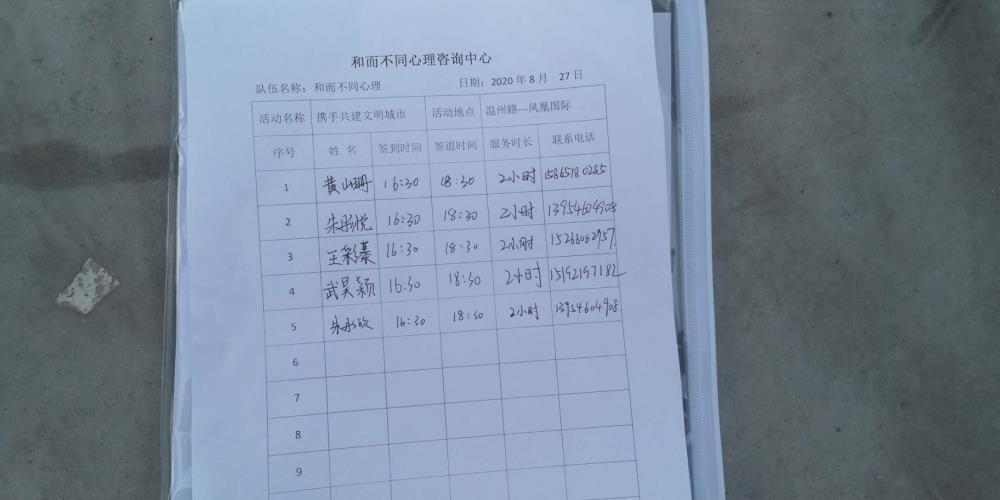 和而不同心理咨询中心
队伍名称：和而不同心理 日期：2020 年 8 月 27 日
活动名称 携手共建文明城市 活动地点 温州路---凤凰国际
序号 姓 名 签到时间 签退时间 服务时长 联系电话
1 黄山珊 16:30 18:30 2小时 15865180285
2 朱彤悦 16:30 18:30 2小时 13954604908
3 王彩蓁 16:30 18:30 2小时 15266082957
4 武昊颖 16:30 18:30 2小时 15192197182
5 朱彤欣 16:30 18:30 2小时 13954604908
6
7
8
9